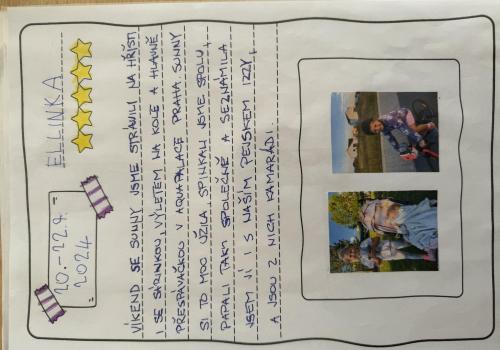 ELLINKA
20.-22.9.
2024
VÍKEND SE SUNNY JSME STRÁVILI NA HŘIŠTI
I SE SÁRINKOU, VÝLETEM NA KOLE A HLAVNĚ
PŘESPÁVAČKOU V AQUAPALACE PRAHA. SUNNY
SI TO MOC UŽILA. SPINKALI JSME SPOLU,
PAPALI TAKY SPOLEČNĚ A SEZNÁMILA
JSEM JI I S NAŠÍM PEJSKEM IZZY,
A JSOU Z NICH KAMARÁDI.